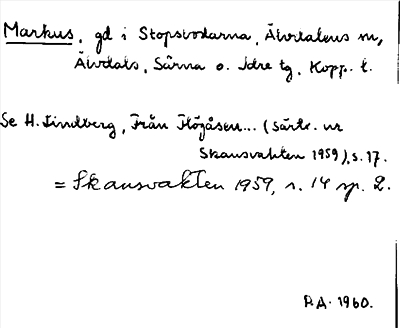 Markus, gd i Stopsbodarna, Älvdalens sn,
Älvdals, Särna o. Idre tg, Kopp. l.
Se H. Lindberg, Från Högåsen... (särtr. ur
Skansvakten 1959), s. 17.
= Skansvakten 1959, s. 14 sp. 2.
R.A. 1960.